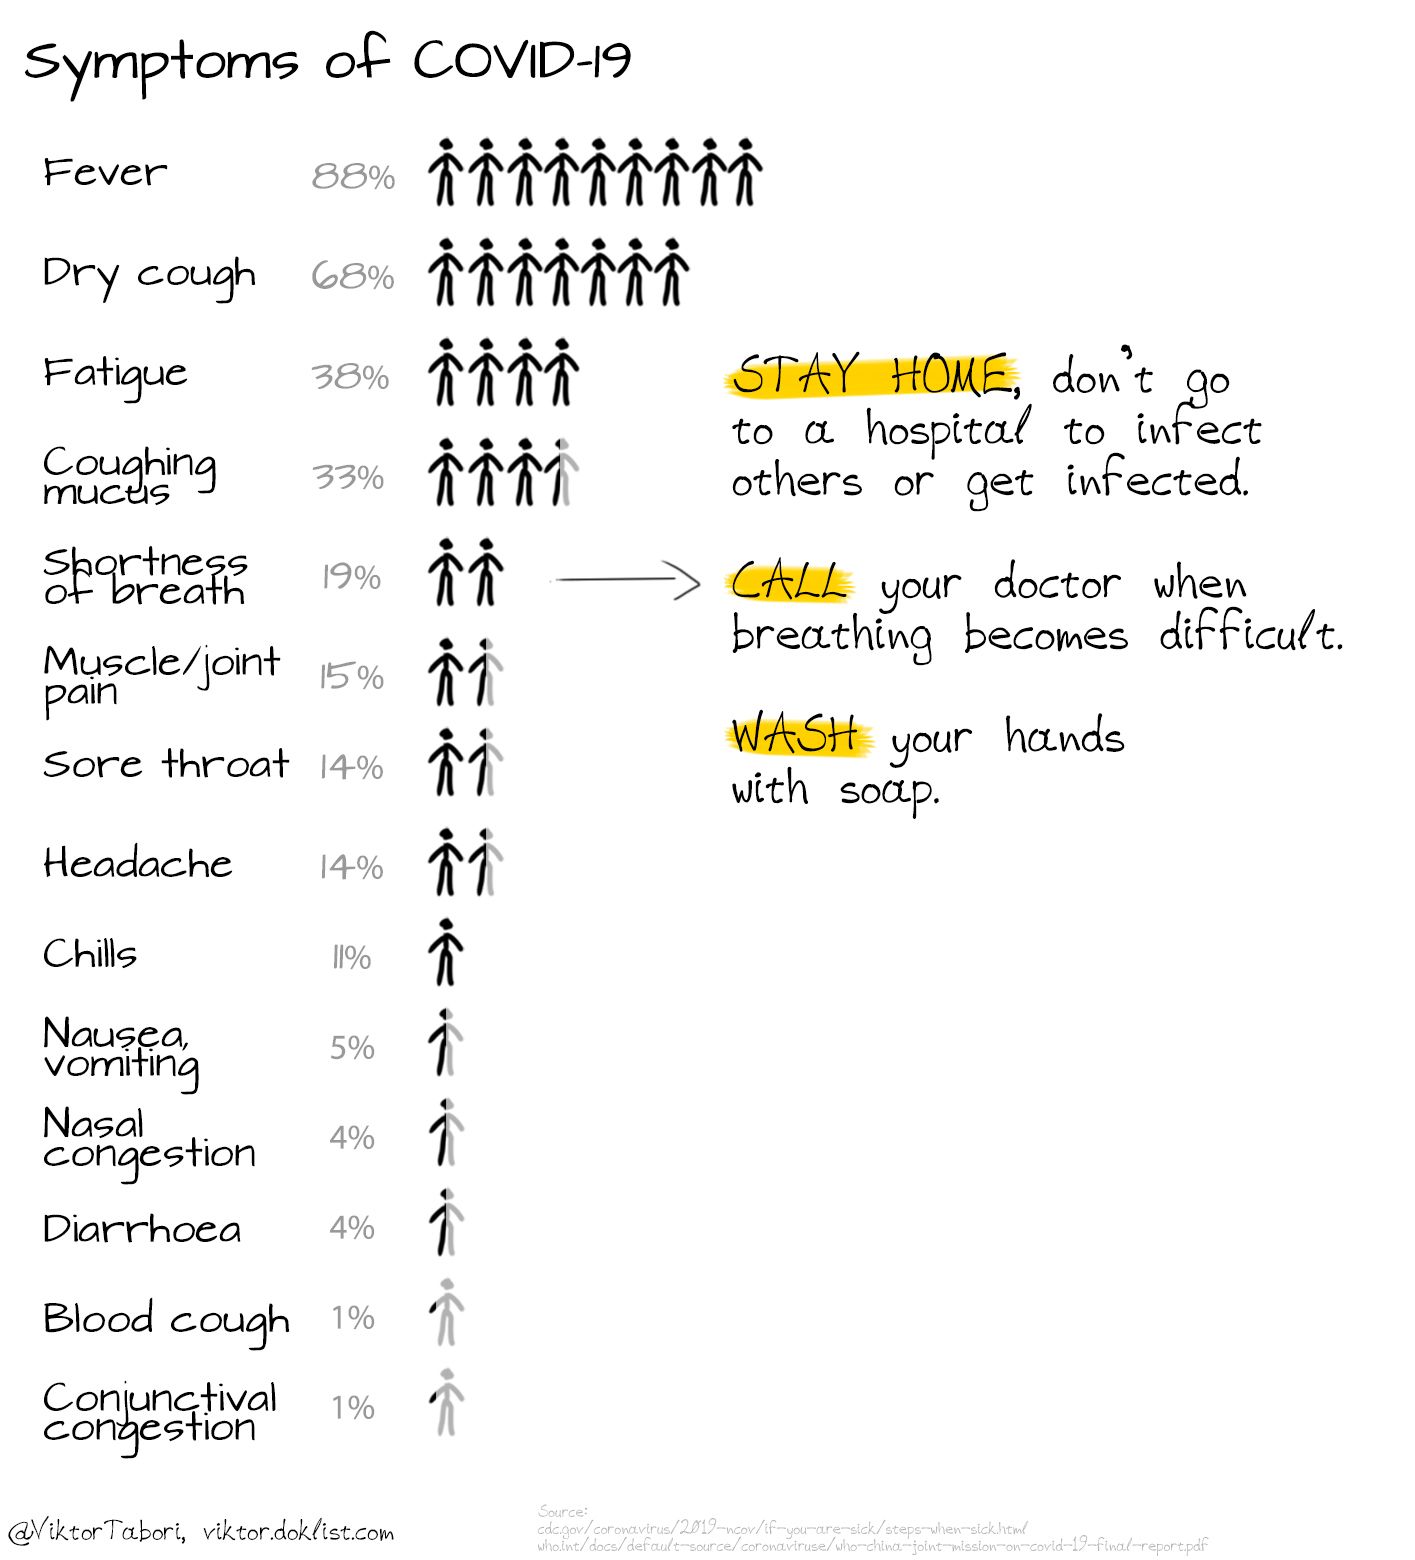 Symptoms of COVID-19
Fever 88%
Dry cough 68%
Fatigue 38%
Coughing
mucus 33%
Shortness
of breath 19%
Muscle/joint
pain 15%
Sore throat 14%
Headache 14%
Chills 11%
Nausea,
vomiting 5%
Nasal
congestion 4%
Diarrhoea 4%
Blood cough 1%
Conjunctival
congestion 1%
STAY HOME, don't go
to a hospital to infect
others or get infected.
CALL your doctor when
breathing becomes difficult.
WASH your hands
with soap.
@ViktorTabori, viktor.doklist.com
Source:
cdc.gov/coronavirus/2019-ncov/if-you-are-sick/steps-when-sick.html
who.int/docs/default-source/coronaviruse/who-china-joint-mission-on-covid-19-final-report.pdf